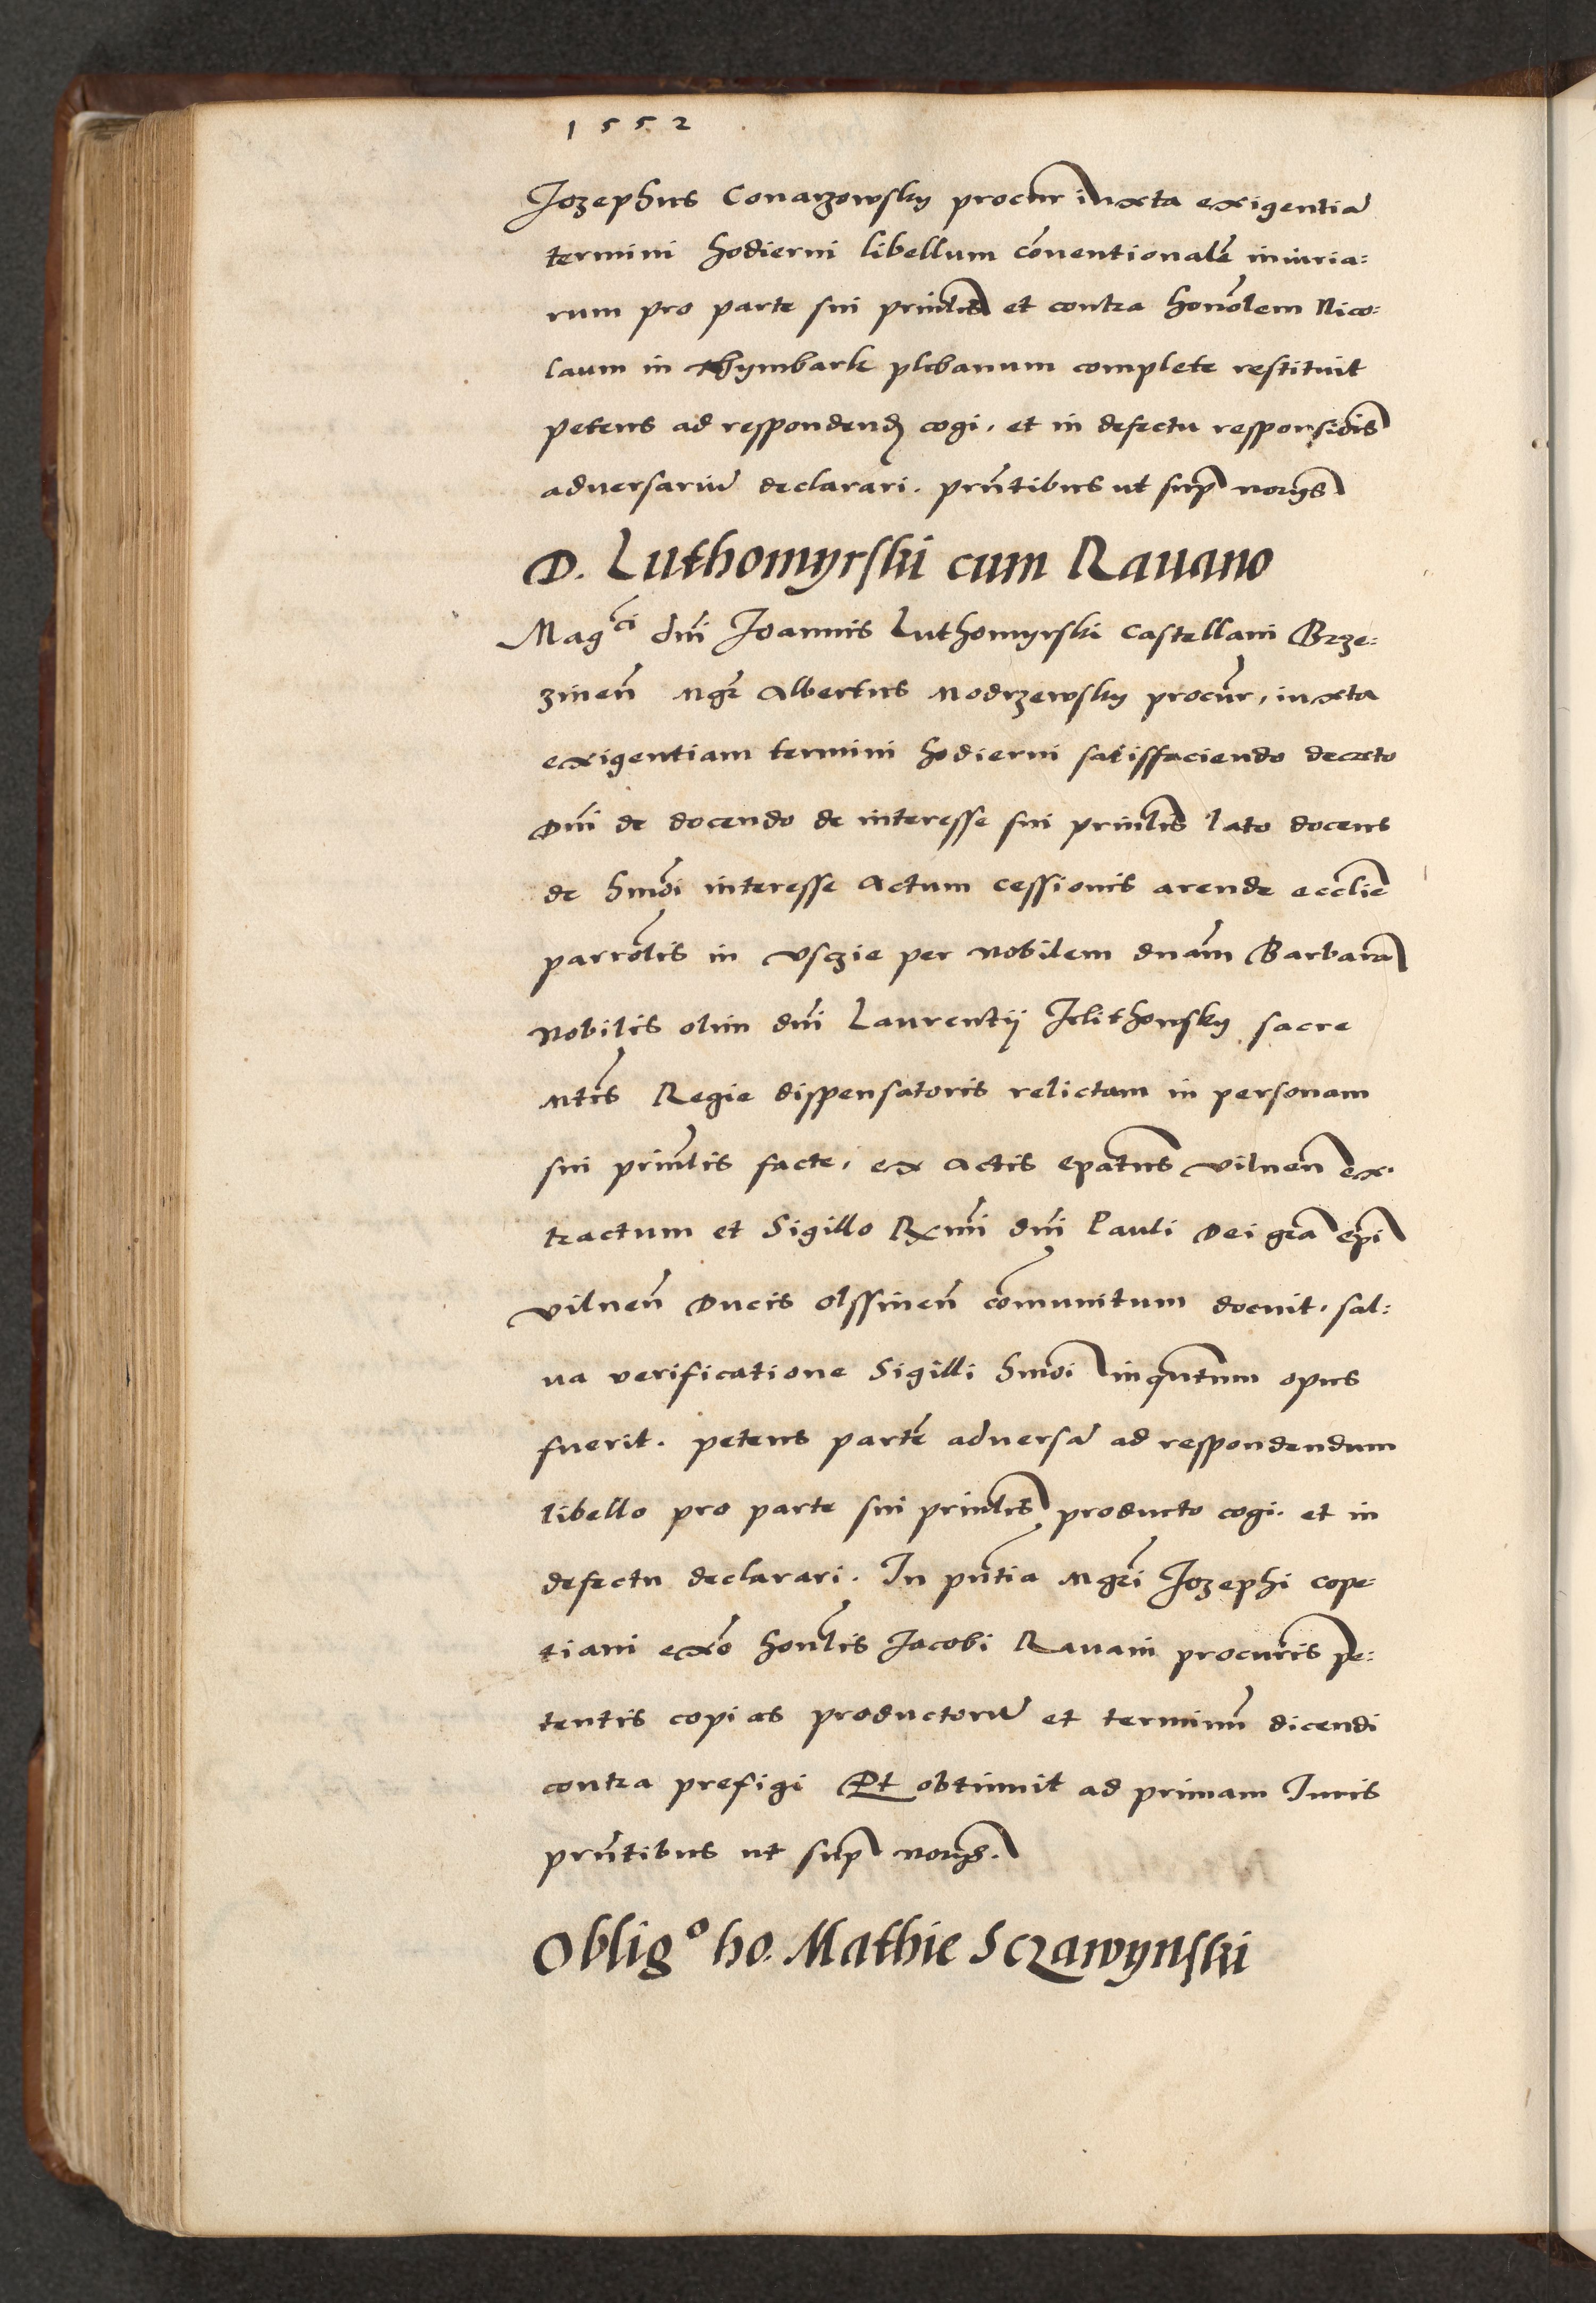 1552
Jozephus Conarzowsky procur̄ iuxta exigentiā
termini hodierni libellum cōuentionalē iniuria:
rum pro parte sui prinlis et contra honōlem Nico:
laum in Thymbark plebanum complete restituit
petens ad respondend cogi, et in defectu responsiōis
adversariū declarari. prn̄tibus ut sup norijs
D. Luthomyrski cum Rauano
Magci dn̄i Joannis Luthomyrski Castellani Brze:
zinen̄ Mgr̄ Albertus Modrzewsky procur̄, iuxta
exigentiam termini hodierni satisfaciendo decreto
Dn̄i de docendo de interesse sui prinlis lato docens
de hmōi interesse Actum cessionis arende eccliē
parrōlis in Usczie per nobilem dnām Barbarā
Nobilis olim dn̄i Laurentij Iclithowsky sacre
Mtis Regie dispensatoris relictam in personam
sui prinlis facte, ex Actis epatus vilnen̄ ex:
tractum et Sigillo Rxmi dn̄i Pauli Dei grā epi
vilnen̄ Ducis Olssinen̄ cōmunitum docuit, sal:
ua verificatione Sigilli hmōi inqntum opus
fuerit. petens partē adversā ad respondendum
libello pro parte sui prinlis producto cogi. et in
defectu declarari. In pn̄tia Mgrī Jozephi cope:
tiani exō honlis Jacobi Rauani procuris pe:
tentis copias productorū et terminū dicendi
contra prefigi Et obtinuit ad primam Iuris
prn̄tibus ut sup norijs.
Oblig° ho. Mathie Sczawynski